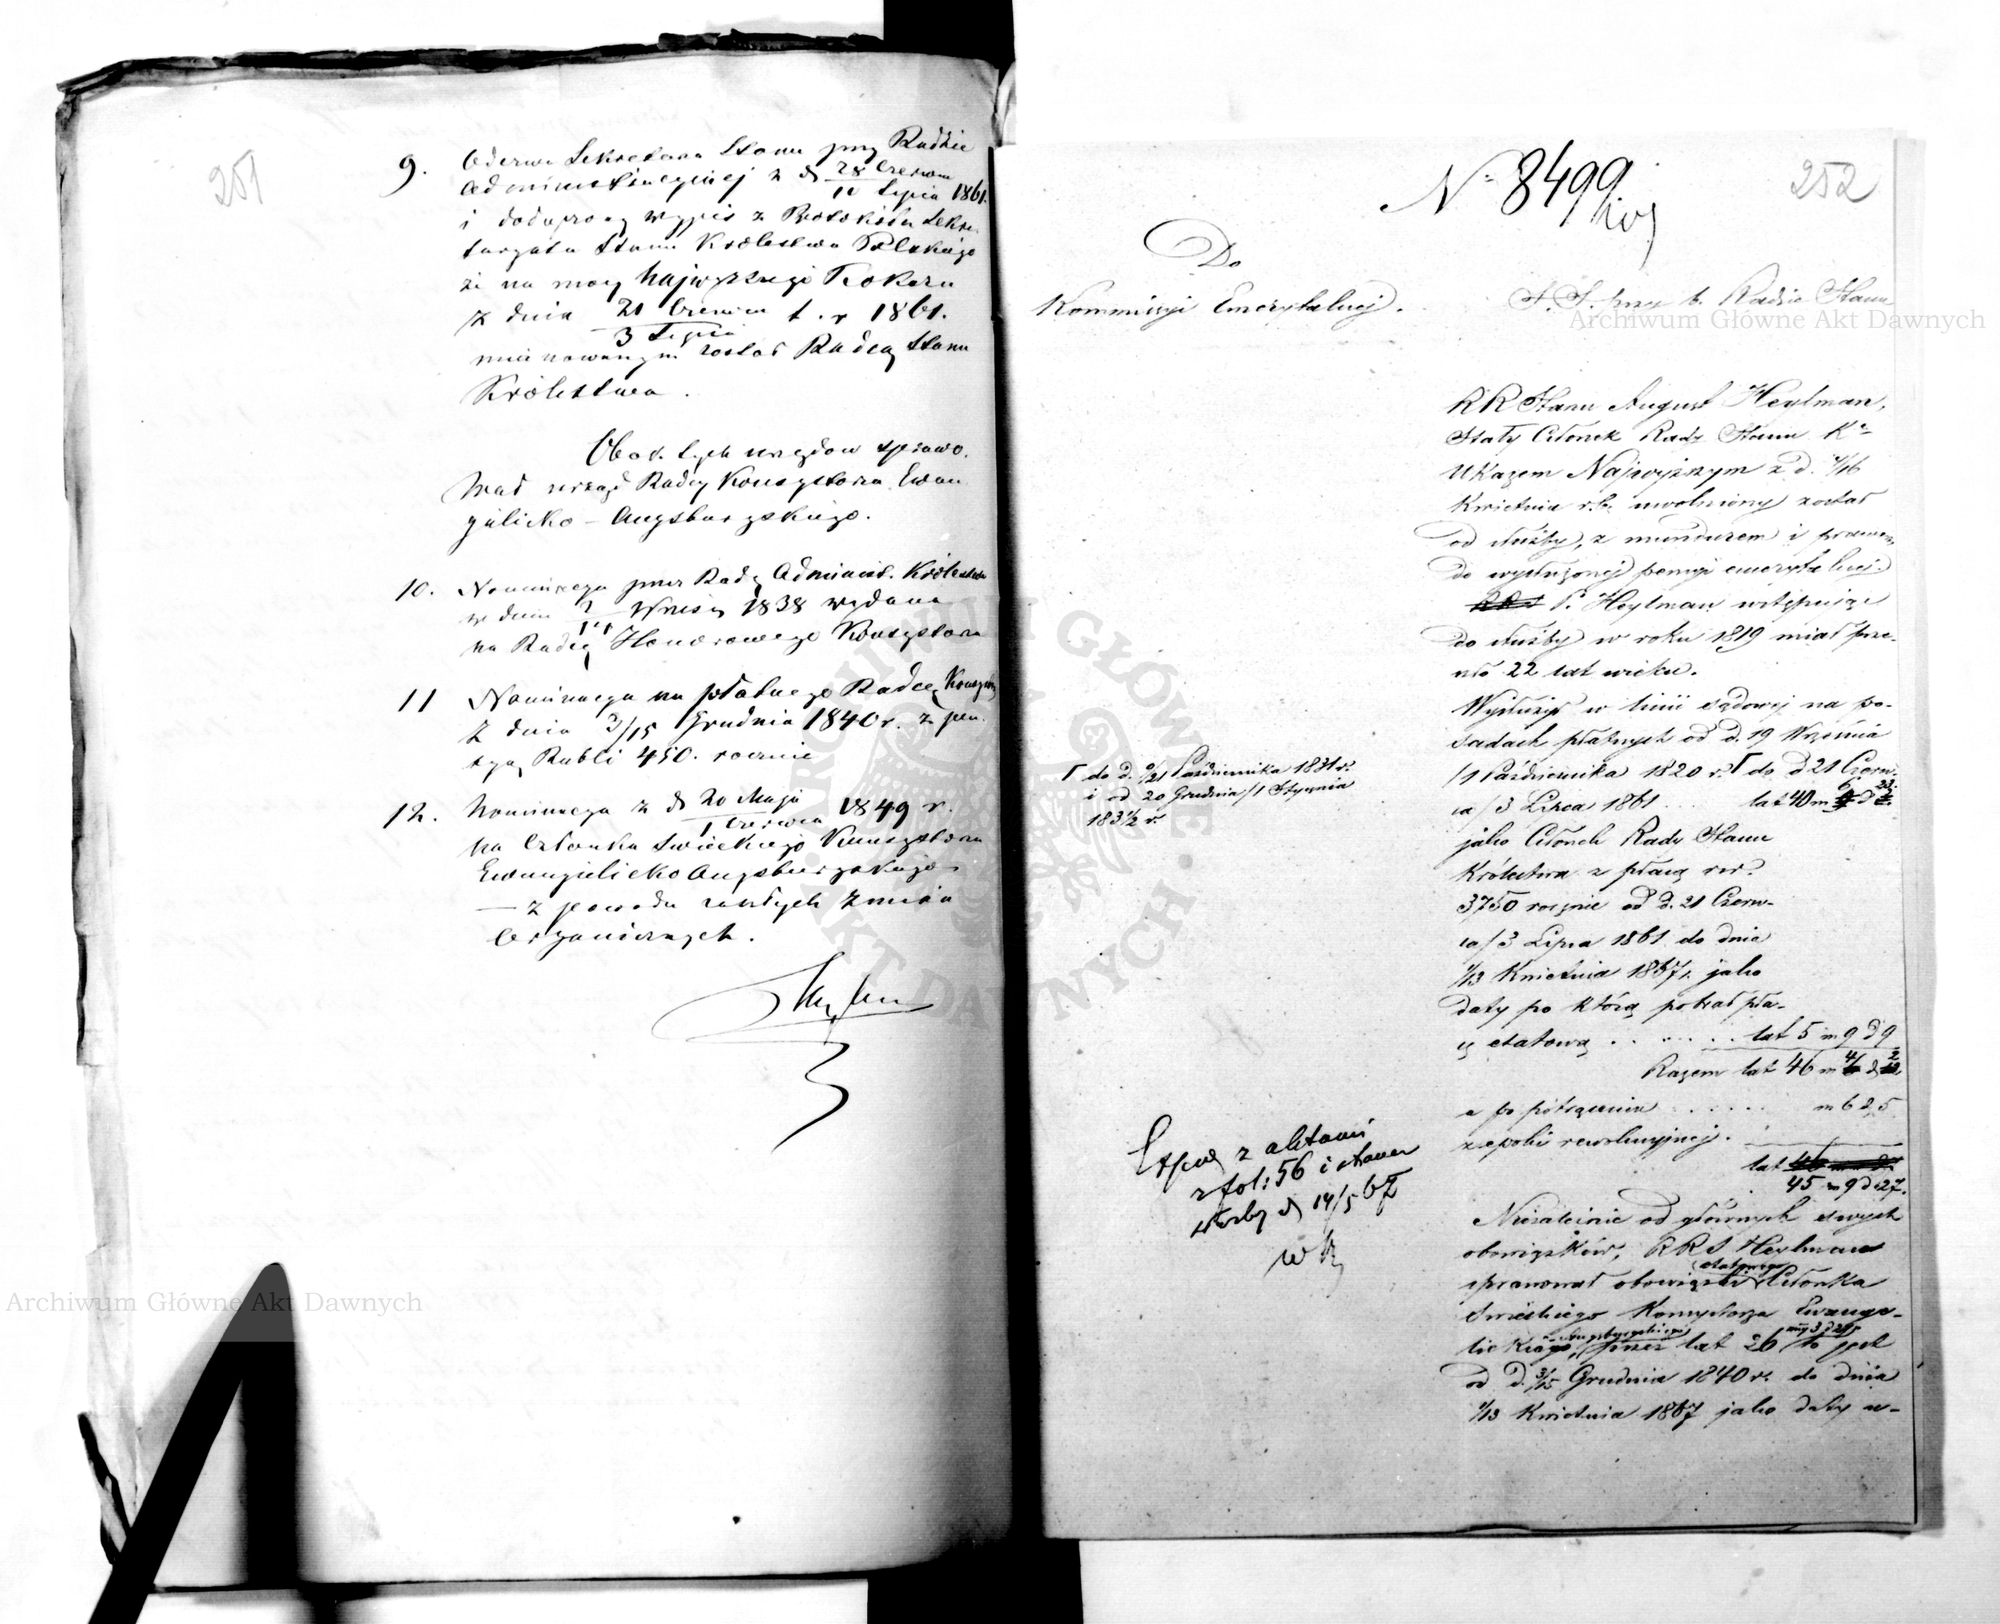 251
9. Odezwa Sekretarza Stanu przy Radzie
Administracyjnej z d 28 Czerwca
10 Lipca 1861.
i dołączony wypis z Protokółu Sekre-
taryatu Stanu Królestwa Polskiego
że na mocy Najwyższego Ukazu
z dnia 21 Czerwca t. r 1861.
3 Lipca
mianowanym został Radcą Stanu
Królestwa.
Obok tych urzędów sprawo-
wał urząd Radcy Konsystorza Ewan
gelicko-Augsburgskiego.
10. Nominacya przez Radę Administ. Królestwa
w dniu 2/14 Wrześ 1838 wydana
na Radcę Honorowego Konsystorza
11 Nominacya na płatnego Radcę Konsys
z dnia 3/15 Grudnia 1840 r. z pen-
syą Rubli 450. rocznie
12. Nominacya z d 20 Maja 1849 r.
1 Czerwca
na Członka Świeckiego Konsystorza
Ewangelicko Augsburgskiego
— z powodu zaszłych zmian
Organicznych.
252
N 8499
Do
Kommissyi Emerytalnej.
S. S. przy b. Radzie Stanu
RR Stanu August Heylman,
Stały Członek Rady Stanu K
Ukazem Najwyższym z d. 4/16
Kwietnia r.b. uwolniony został
od służby, z mundurem i prawem
do wysłużonej pensyi emerytalnej.
P. Heylman wstępując
do służby w roku 1819 miał prze-
szło 22 lat wieku.
Wysłużył w linii sądowej na po-
sadach płatnych od d. 19 Września
/1 Października 1820 r. do d 21 Czerw-
ca/3 Lipca 1861 ... lat 40 m
jako Członek Rady Stanu
Królestwa z płacą rsr
3750 rocznie od d. 21 Czerw-
ca/3 Lipca 1861 do dnia
1/13 Kwietnia 1867 r. jako
daty po którą pobrał pła-
cę etatową ...... lat 5 m 9 d 9
Razem lat 46 m 4 d 2
a po potrąceniu ...... m 6 d 5
z epoki rewolucyjnej.
lat
45 m 9 d 27.
Niezależnie od głównych swych
obowiązków, RRS Heylman
etatowego
sprawował obowiązki Członka
Świeckiego Konsystorza Ewange-
Augsburgskiego
lickiego, przez lat 26 to jest
od D. 3/15 Grudnia 1840 r. do dnia
1/13 Kwietnia 1867 jako daty u-
do d. 9/21 Października 1831 r.
i od 20 Grudnia/1 Stycznia
183½ r.
z aktami
z fol: 56 i stanu
służby d 14/5 67
Archiwum Główne Akt Dawnych
Archiwum Główne Akt Dawnych
ARCHIWUM GŁÓWNE AKT DAWNYCH